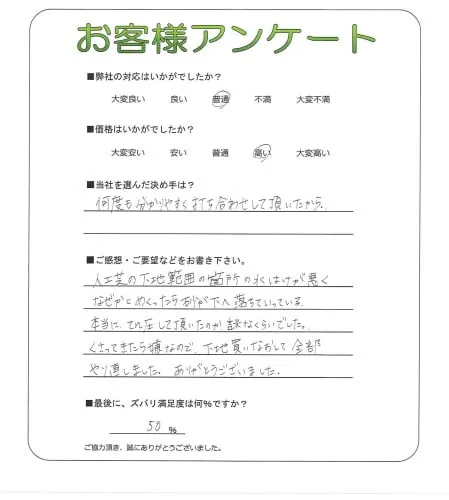 お客様アンケート
■弊社の対応はいかがでしたか?
大変良い 良い 普通 不満 大変不満
■価格はいかがでしたか?
大変安い 安い 普通 高い 大変高い
■当社を選んだ決め手は?
何度も分かりやすく打ち合わせして頂いたから、
■ご感想・ご要望などをお書き下さい。
人工芝の下地範囲の箇所の水はけが悪く
なぜかとめくったら砂が下へ落ちていっている。
本当に、て圧して頂いたのか 謎なくらいでした。
くさってきたら嫌なので、下地買いなおして全部
やり直しました。ありがとうございました。
■最後に、ズバリ満足度は何%ですか?
50 %
ご協力頂き、誠にありがとうございました。